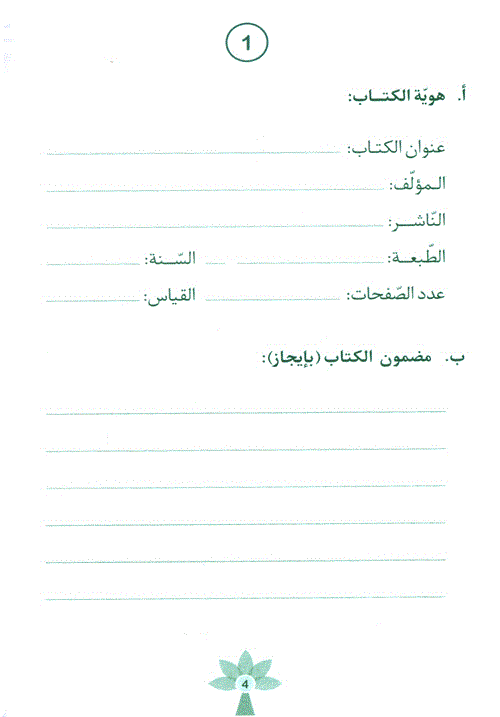 1
أ. هويّة الكتــاب:
عنوان الكتـاب:
الـمؤلّف:
النّاشــر:
الطّبعــة: السّــنة:
عدد الصّفحات: القياس:
ب. مضمون الكتاب (بإيجاز):
4